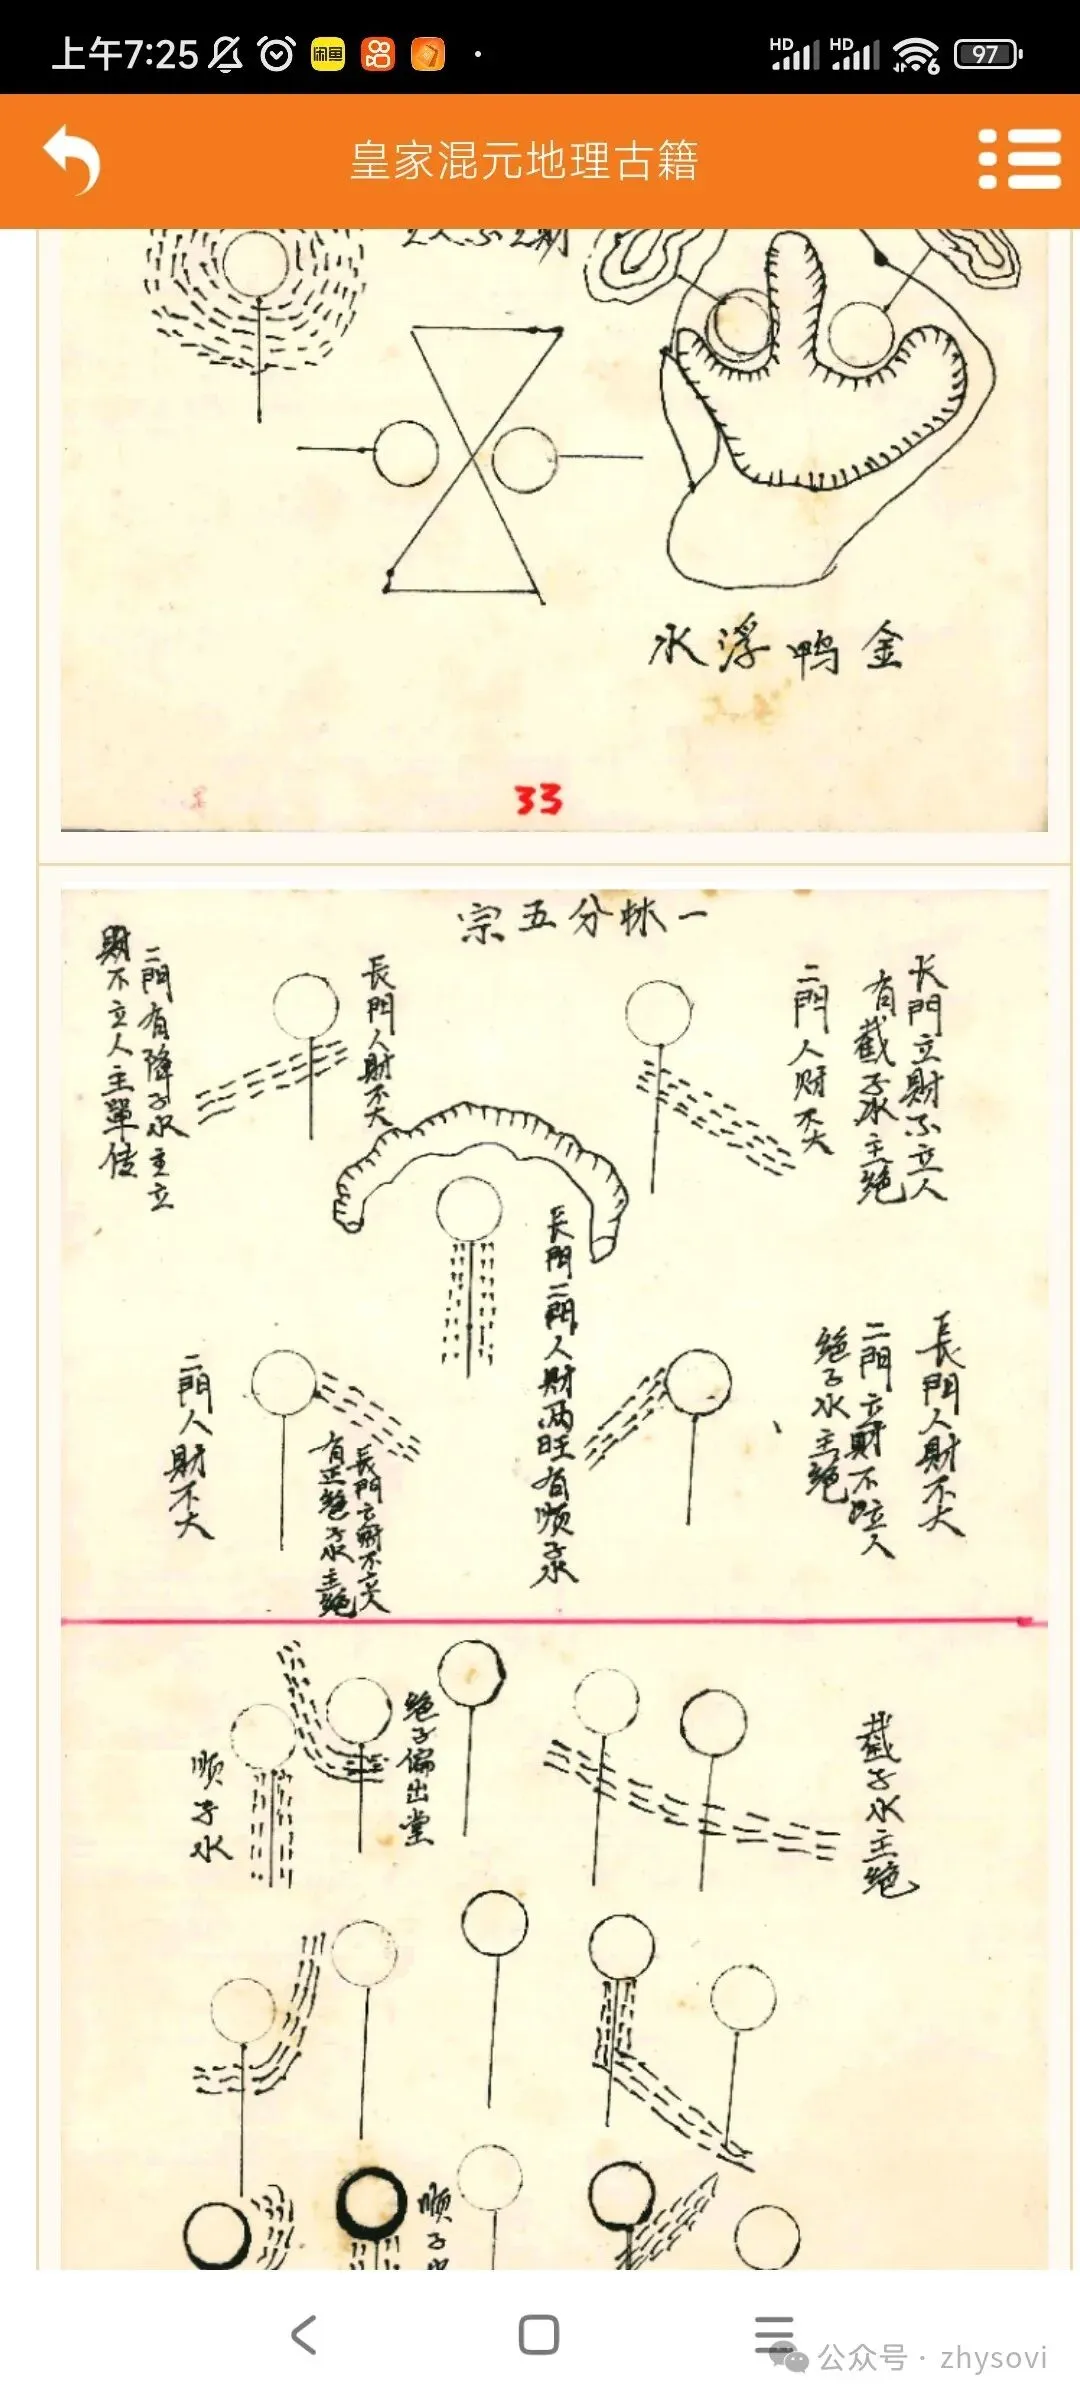 上午7:25
HD
HD
6
97
皇家混元地理古籍
金鸭浮水
33
一林分五宗
长門立財不立人
有截子水主絕
二門人财不大
長門人財不大
二門有降子水主立
財不立人主單传
長門二門人財两旺有顺子水
長門人財不大
二門立財不立人
絕子水主絕
長門立財不立人
有正絕子水主絕
二門人財不大
截子水主絕
絕子偏出堂
顺子水
顺子
公众号 · zhysovi